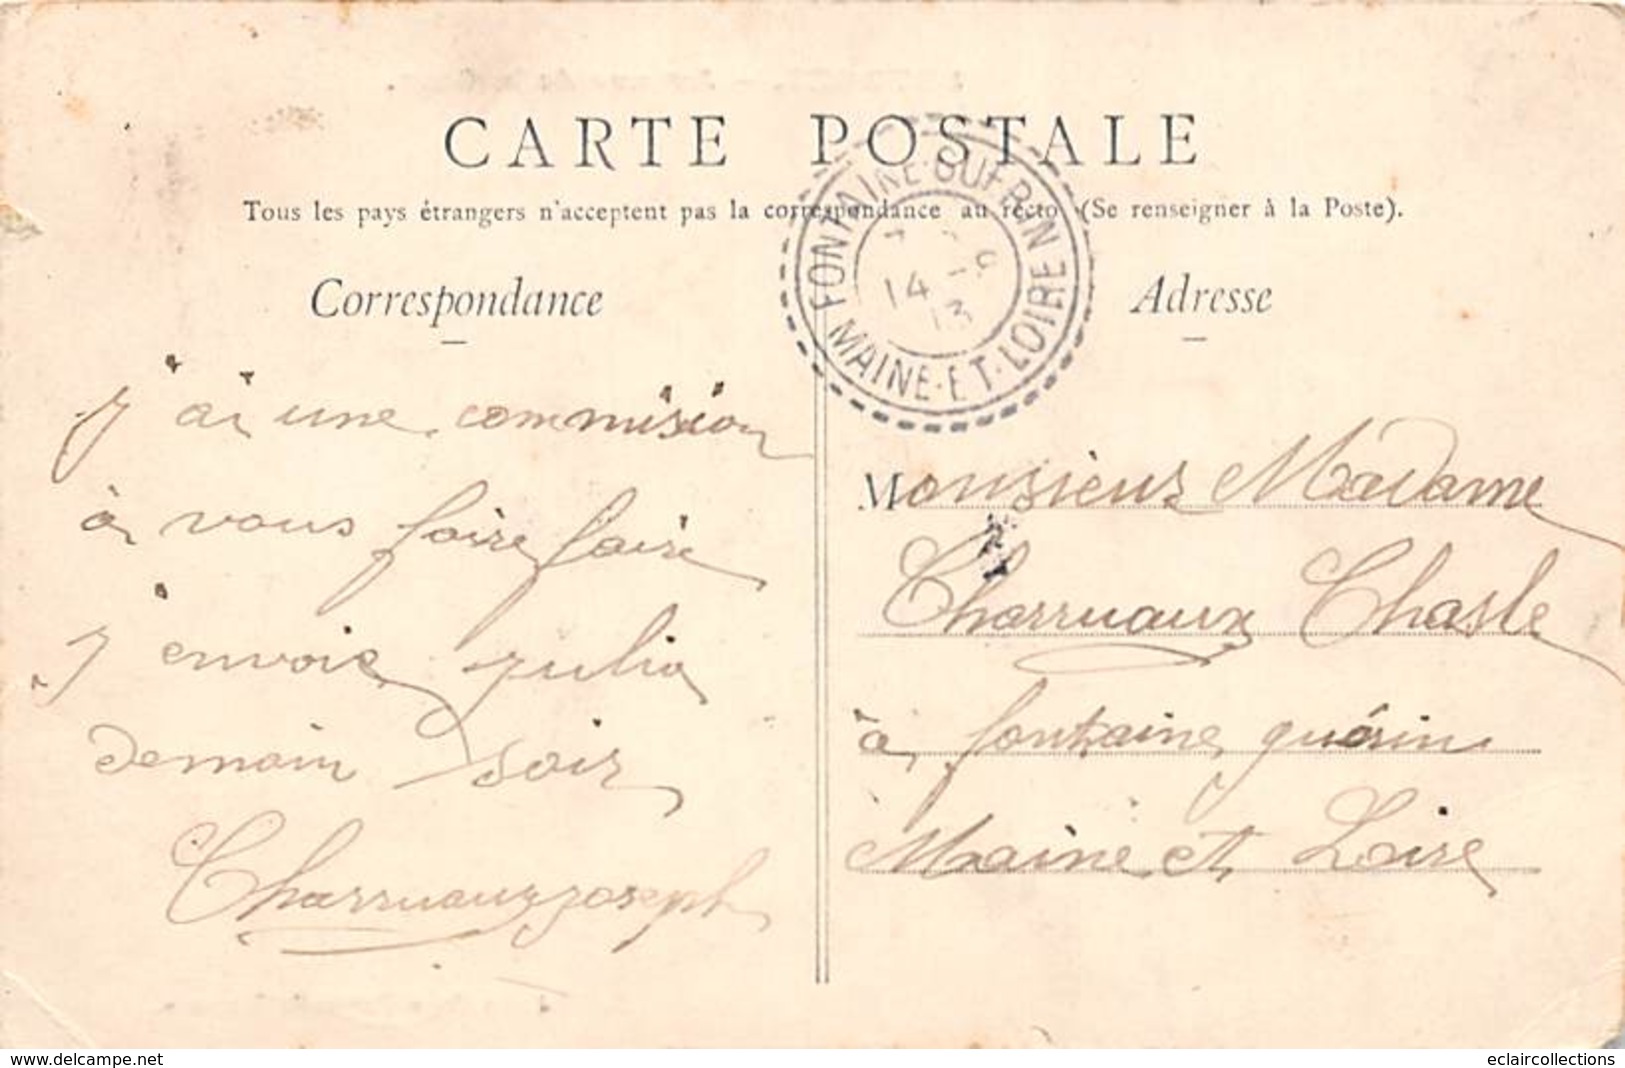 CARTE POSTALE
Tous les pays étrangers n'acceptent pas la correspondance au recto (Se renseigner à la Poste).
FONTAINE-GUERIN
14 - 9
13
MAINE-ET-LOIRE
Correspondance
j'ai une commision
à vous faire faire
j'envoie julia
demain soir
Charruaux joseph
Adresse
Monsieur Madame
Charruaux Chasle
à fontaine guérin
Maine et Loire
www.delcampe.net
eclaircollections